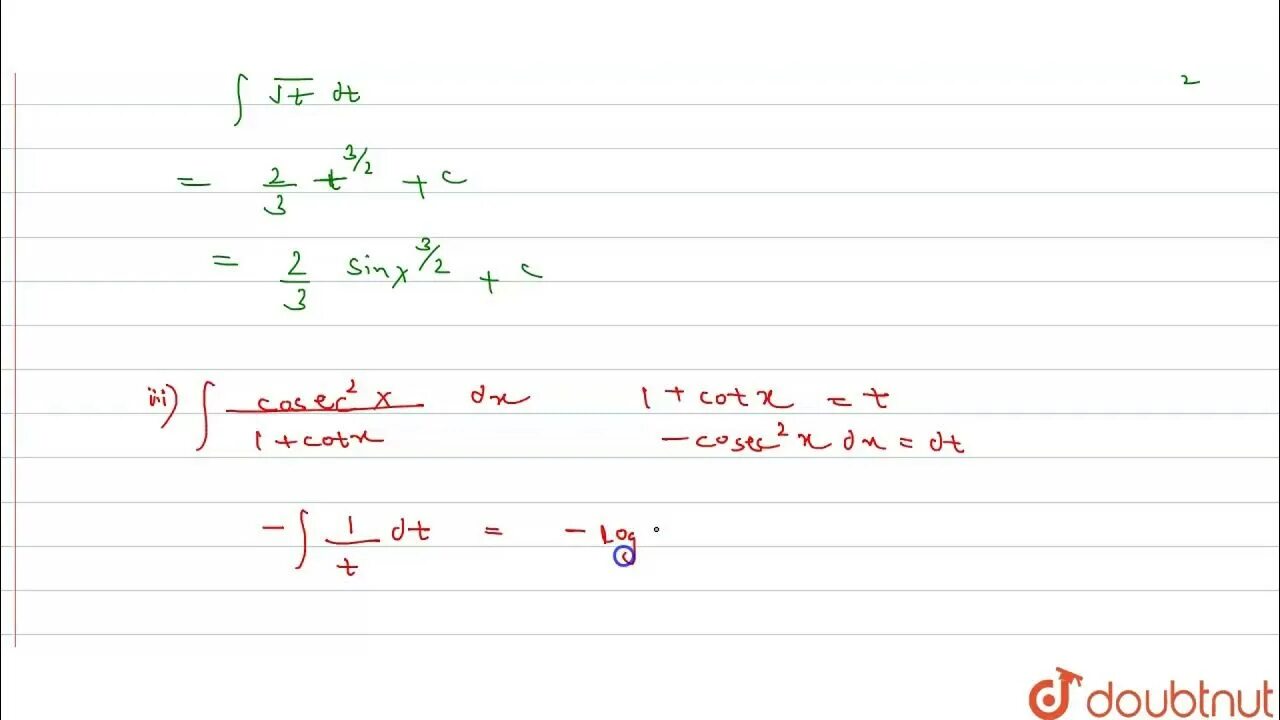 2
∫ √t dt
= 2/3 t^3/2 + c
= 2/3 sinx^3/2 + c
iii) ∫ cosec²x / 1+cotx dx 1 + cotx = t
-cosec²x dx = dt
- ∫ 1/t dt = - Log
doubtnut